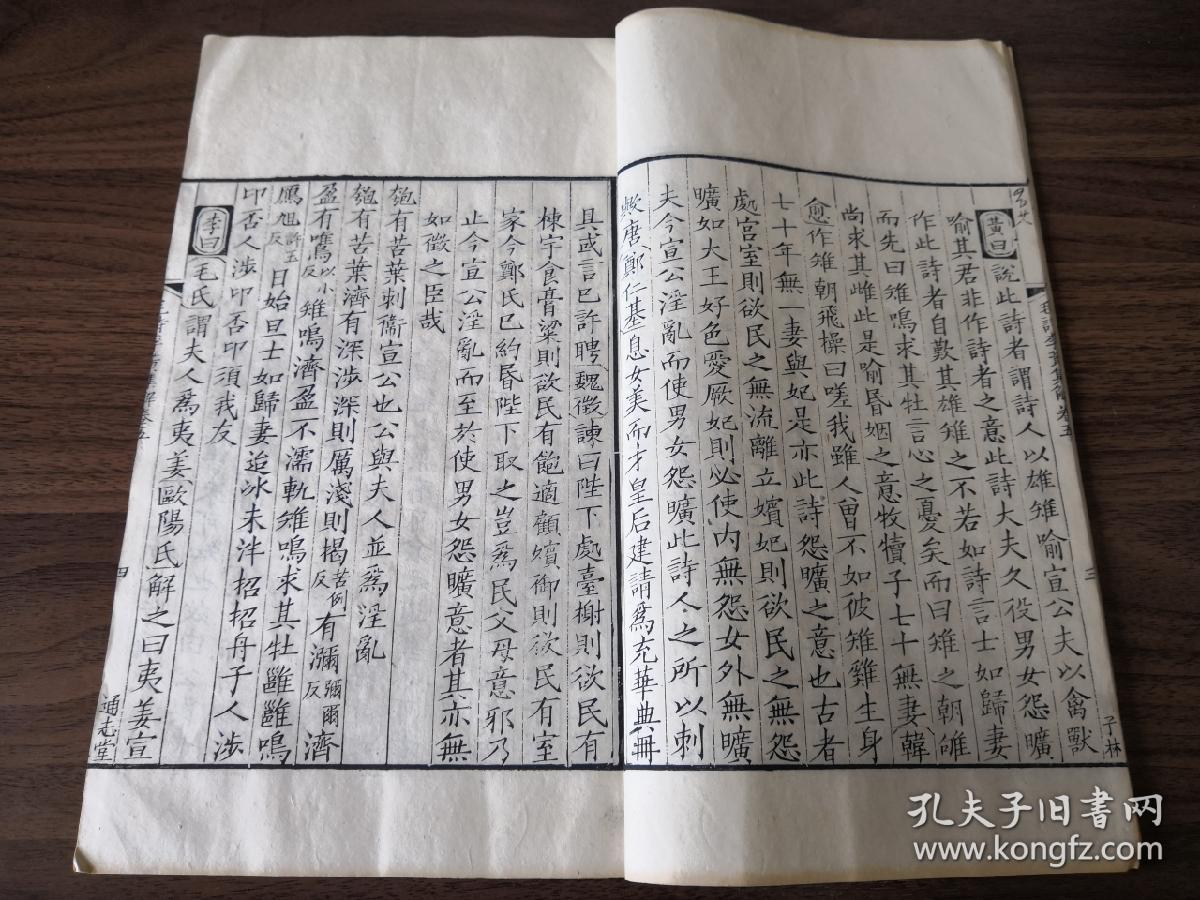 黃曰說此詩者謂詩人以雄雉喻宣公夫以禽獸
喻其君非作詩者之意此詩大夫久役男女怨曠
作此詩者自歎其雄雉之不若如詩言士如歸妻
而先曰雉鳴求其牡言心之憂矣而曰雉之朝雊
尚求其雌此是喻昏姻之意牧犢子七十無妻韓
愈作雉朝飛操曰嗟我雖人曾不如彼雉雞生身
七十年無一妻與妃是亦此詩怨曠之意也古者
處宮室則欲民之無流離立嬪妃則欲民之無怨
曠如大王好色愛厥妃則必使內無怨女外無曠
夫今宣公淫亂而使男女怨曠此詩人之所以刺
歟唐鄭仁基息女美而才皇后建請爲充華典冊
具或言已許聘魏徵諫曰陛下處臺榭則欲民有
棟宇食膏粱則欲民有飽適顧嬪御則欲民有室
家今鄭氏已約昏陛下取之豈爲民父母意邪乃
止今宣公淫亂而至於使男女怨曠意者其亦無
如徵之臣哉
匏有苦葉刺衞宣公也公與夫人並爲淫亂
匏有苦葉濟有深涉深則厲淺則揭苦例反有瀰彌爾反濟
盈有鷕以小反雉鳴濟盈不濡軌雉鳴求其牡雝雝鳴
鴈旭許玉反日始旦士如歸妻迨冰未泮招招舟子人涉
卬否人涉卬否卬須我友
李曰毛氏謂夫人爲夷姜歐陽氏解之曰夷姜宣
子林
三
四
通志堂
孔夫子旧书网
www.kongfz.com